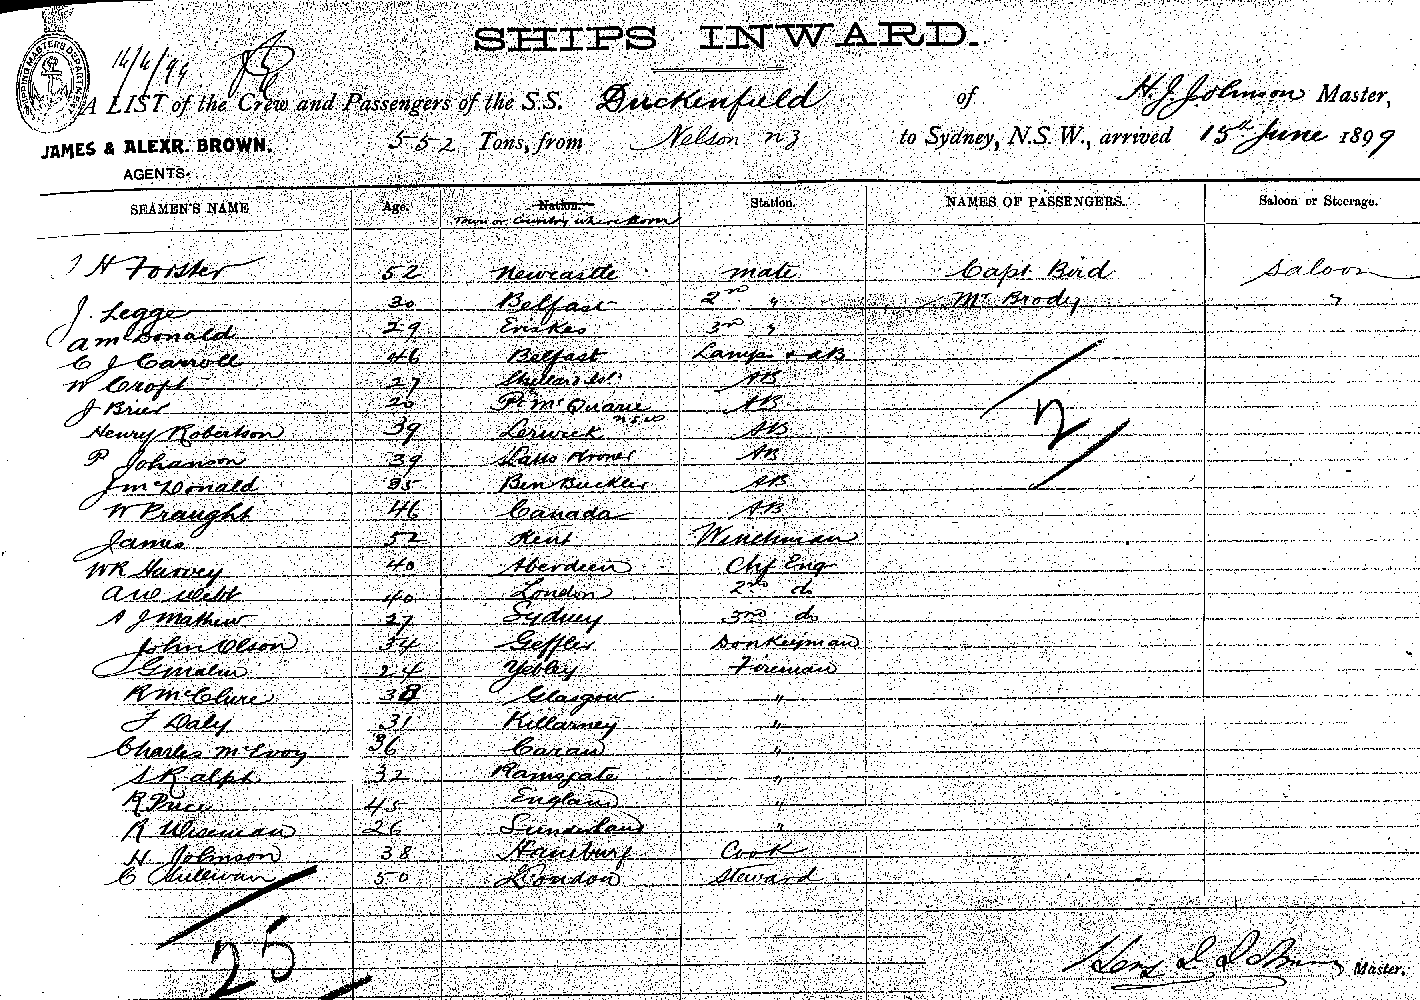 SHIPS INWARD.
A LIST of the Crew and Passengers of the S.S. Duckenfield of H. J. Johnson Master,
JAMES & ALEXR. BROWN. 552 Tons, from Nelson NZ to Sydney, N.S.W., arrived 15th June 1899
AGENTS.
SEAMEN'S NAME Age. Nation. Station. NAMES OF PASSENGERS. Saloon or Steerage.
Town or Country where Born
H Forster 52 Newcastle mate Capt Bird Saloon
J. Legge 30 Belfast 2nd " Mr Brody "
A McDonald 29 3rd "
C J Carroll 46 Belfast Lamps & AB
W Croft 27 AB
J Brier 20 Pt McQuarie NSW AB
Henry Robertson 39 Lerwick AB
P Johanson 39 AB
J McDonald 35 Ben Buckler AB
W Praught 46 Canada AB
James 52 Kent Winchman
WR Harvey 40 Aberdeen Chf Eng
AW Webb 40 London 2nd do
A J Mathew 27 Sydney 3rd do
John Olson 54 Geffler Donkeyman
G Malin 24 Fireman
R McClure 38 Glasgow "
J Daly 31 Killarney "
Charles McEvoy 36 Cavan "
S Ralph 32 Ramsgate "
R Price 45 England "
R Wiseman 26 Sunderland "
H Johnson 38 Hamburg Cook
C Sullivan 50 London Steward
2
25
Master.